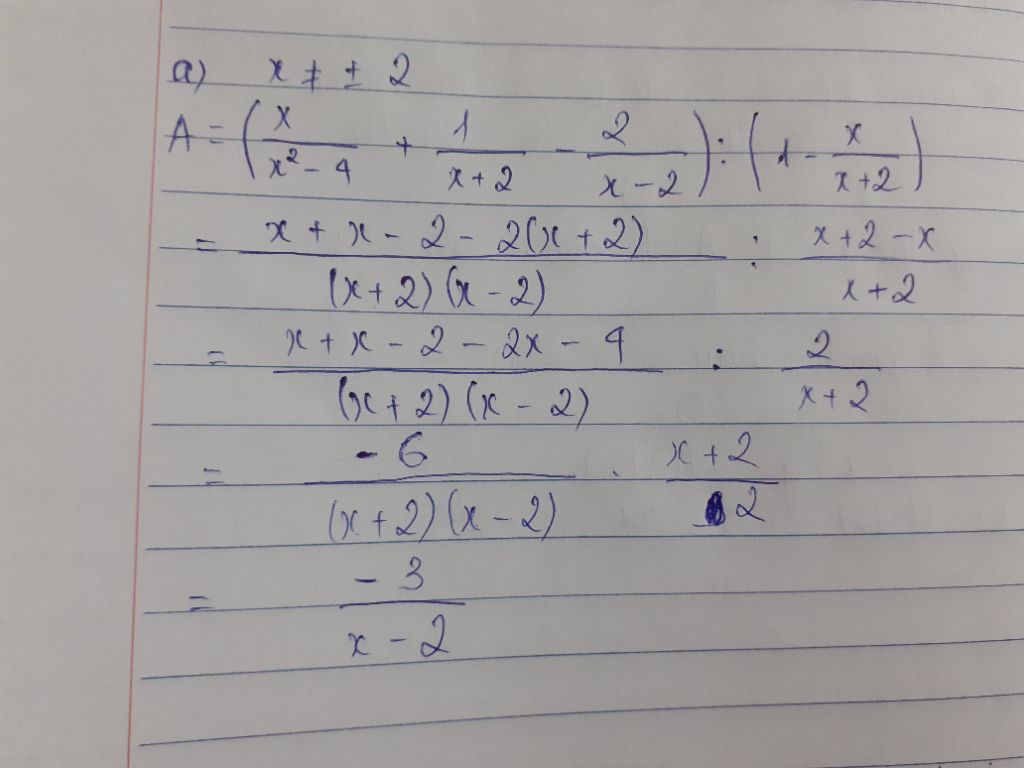 a) x ≠ ± 2
A = (x/(x² - 4) + 1/(x + 2) - 2/(x - 2)) : (1 - x/(x + 2))
= (x + x - 2 - 2(x + 2))/((x + 2)(x - 2)) : (x + 2 - x)/(x + 2)
= (x + x - 2 - 2x - 4)/((x + 2)(x - 2)) : 2/(x + 2)
= -6/((x + 2)(x - 2)) . (x + 2)/2
= -3/(x - 2)